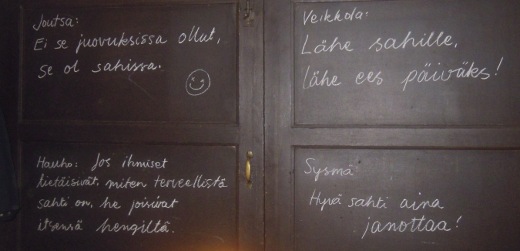 Joutsa:
Ei se juovuksissa ollut,
se ol sahissa.
Veikkola:
Lähe sahille,
lähe ees päiväks!
Hauho: Jos ihmiset
tietäisivät, miten terveellistä
sahti on, he joisivat
itsensä hengiltä.
Sysmä
Hyvä sahti aina
janottaa!